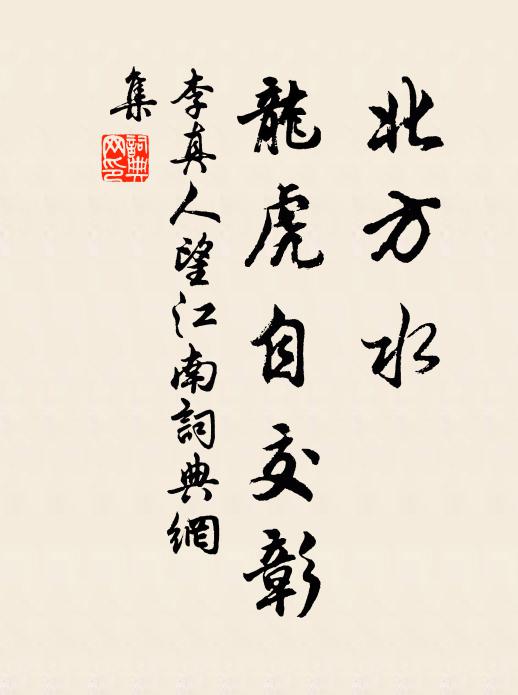 北方水
龍虎自交彰
李真人望江南詞典網
集
詞典
网印